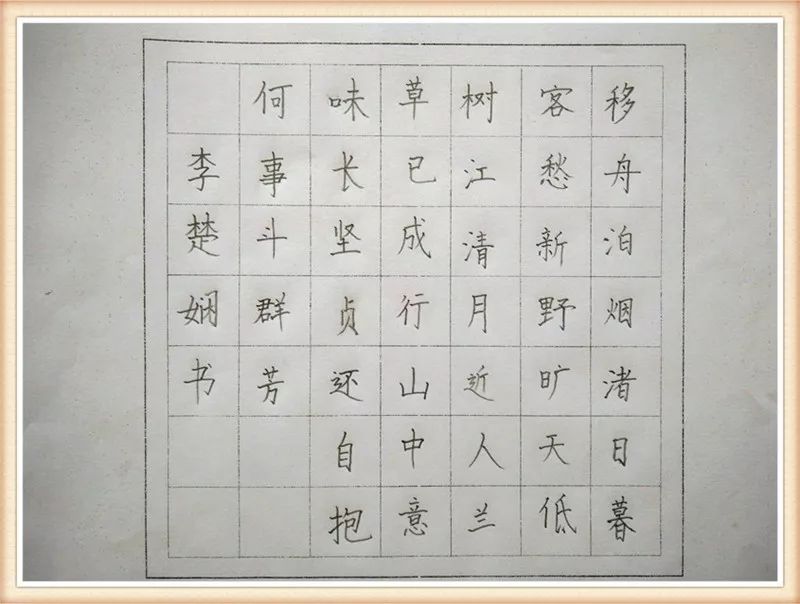 移舟泊烟渚日暮
客愁新野旷天低
树江清月近人兰
草已成行山中意
味长坚贞还自抱
何事斗群芳
李楚娴书